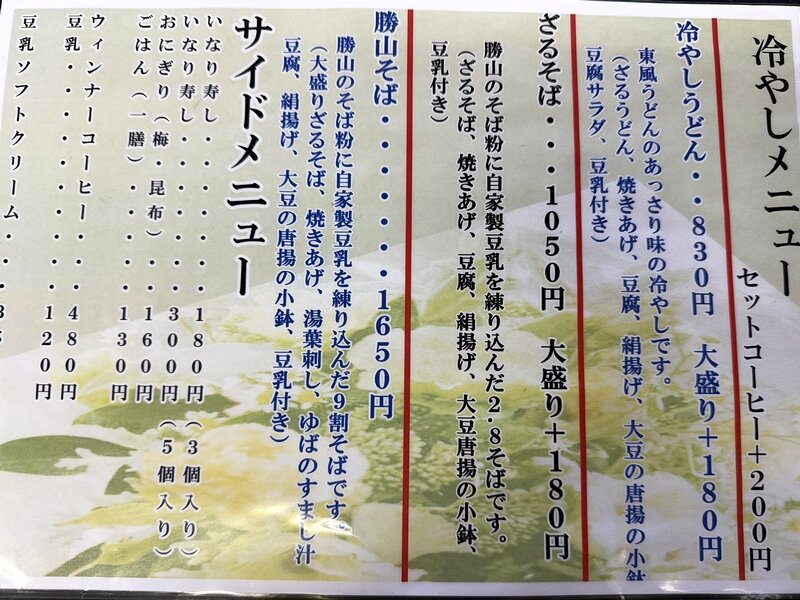 冷やしメニュー
セットコーヒー＋200円
冷やしうどん・・830円　大盛り＋180円
東風うどんのあっさり味の冷やしです。
（ざるうどん、焼きあげ、豆腐、絹揚げ、大豆の唐揚の小鉢
豆腐サラダ、豆乳付き）
ざるそば・・・1050円　大盛り＋180円
勝山のそば粉に自家製豆乳を練り込んだ2.8そばです。
（ざるそば、焼きあげ、豆腐、絹揚げ、大豆唐揚の小鉢、
豆乳付き）
勝山そば・・・・・・・1650円
勝山のそば粉に自家製豆乳を練り込んだ9割そばです。
（大盛りざるそば、焼きあげ、湯葉刺し、ゆばのすまし汁
豆腐、絹揚げ、大豆の唐揚の小鉢、豆乳付き）
サイドメニュー
いなり寿し・・・・・・180円（3個入り）
いなり寿し・・・・・・300円（5個入り）
おにぎり（梅・昆布）・・160円
ごはん（一膳）・・・・・130円
ウィンナーコーヒー・・・480円
豆乳・・・・・・・・・120円
豆乳ソフトクリーム・・・